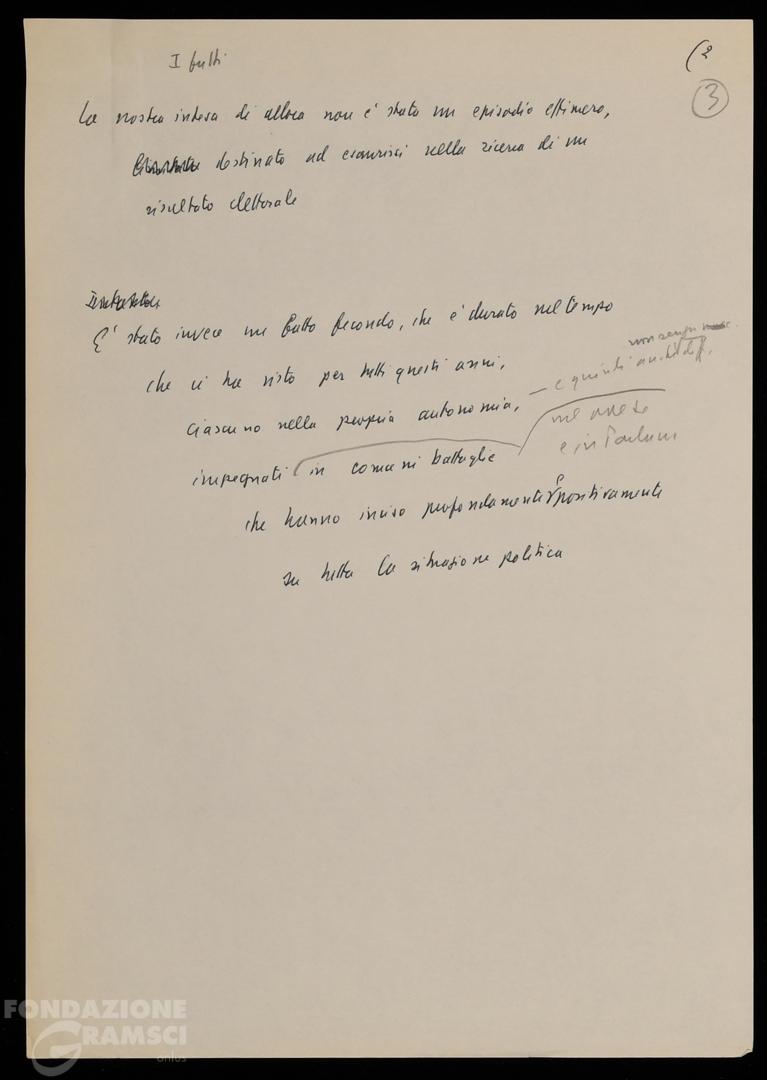 I frutti
(2
3
La nostra intesa di allora non è stata un episodio effimero,
destinato ad esaurirsi nella ricerca di un
risultato elettorale
E' stato invece un fatto fecondo, che è durato nel tempo
che ci ha visto per tutti questi anni,
non sempre
ciascuno nella propria autonomia, — e quindi anche diff.
impegnati in comuni battaglie nel paese
e in Parlam
che hanno inciso profondamente e positivamente
su tutta la situazione politica
FONDAZIONE
GRAMSCI
onlus